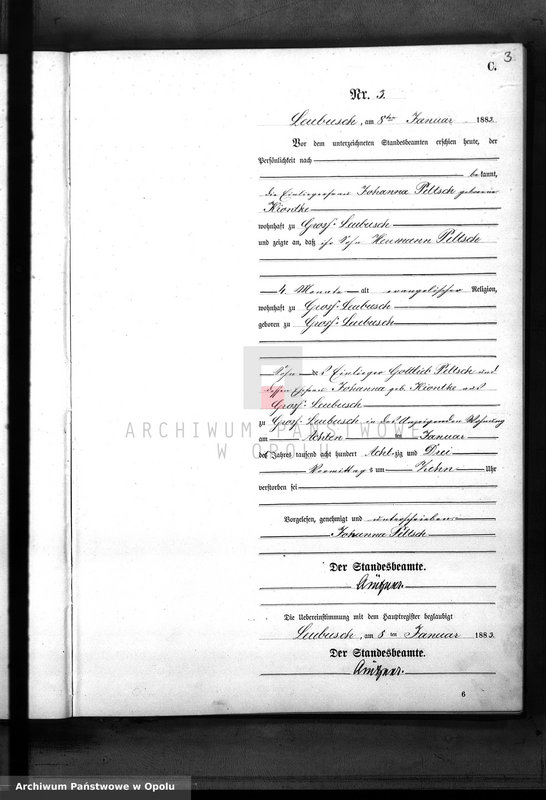 3
C.
Nr. 3.
Leubusch, am 8ten Januar 1883.
Vor dem unterzeichneten Standesbeamten erschien heute, der
Persönlichkeit nach
bekannt,
die Einliegerfrau Johanna Peltsch geborene
Kiontke
wohnhaft zu Gross-Leubusch
und zeigte an, daß ihr Sohn Hermann Peltsch
4 Monate alt evangelischer Religion,
wohnhaft zu Gross-Leubusch
geboren zu Gross-Leubusch
Sohn des Einlieger Gottlieb Peltsch und
dessen Ehefrau Johanna geb. Kiontke aus
Gross-Leubusch
zu Gross-Leubusch in der Wohnung
am Achten ten Januar
des Jahres tausend acht hundert Achtzig und Drei
Vormittags um Zehn Uhr
verstorben sei
Vorgelesen, genehmigt und unterschrieben
Johanna Peltsch
Der Standesbeamte.
Die Uebereinstimmung mit dem Hauptregister beglaubigt
Leubusch, am 8 ten Januar 1883.
Der Standesbeamte.
6
ARCHIWUM PAŃSTWOWE
W OPOLU
Archiwum Państwowe w Opolu